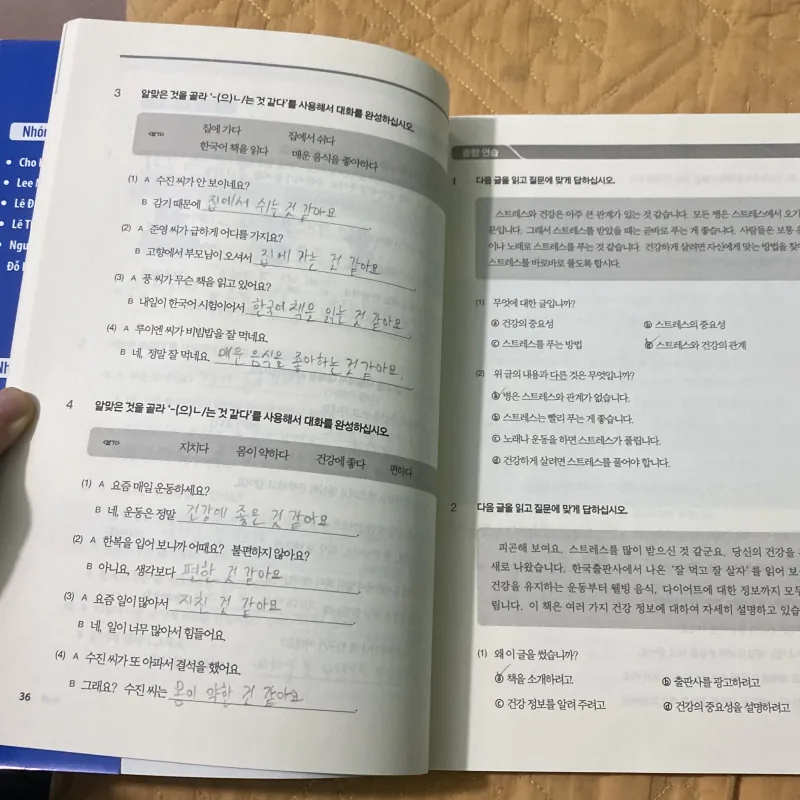 Nhóm
• Cho
• Lee
• Lê
• Lê
•
Đỗ
3 알맞은 것을 골라 '-(으)ㄴ/는 것 같다'를 사용해서 대화를 완성하십시오.
<보기> 집에 가다 집에서 쉬다
한국어 책을 읽다 매운 음식을 좋아하다
(1) A 수진 씨가 안 보이네요?
B 감기 때문에 집에서 쉬는 것 같아요.
(2) A 준영 씨가 급하게 어디를 가지요?
B 고향에서 부모님이 오셔서 집에 가는 것 같아요.
(3) A 풍 씨가 무슨 책을 읽고 있어요?
B 내일이 한국어 시험이어서 한국어 책을 읽는 것 같아요.
(4) A 루이엔 씨가 비빔밥을 잘 먹네요.
B 네, 정말 잘 먹네요. 매운 음식을 좋아하는 것 같아요.
4 알맞은 것을 골라 '-(으)ㄴ/는 것 같다'를 사용해서 대화를 완성하십시오.
<보기> 지치다 몸이 약하다 건강에 좋다 편하다
(1) A 요즘 매일 운동하세요?
B 네, 운동은 정말 건강에 좋은 것 같아요.
(2) A 한복을 입어 보니까 어때요? 불편하지 않아요?
B 아니요, 생각보다 편한 것 같아요.
(3) A 요즘 일이 많아서 지친 것 같아요.
B 네, 일이 너무 많아서 힘들어요.
(4) A 수진 씨가 또 아파서 결석을 했어요.
B 그래요? 수진 씨는 몸이 약한 것 같아요.
36
종합 연습
1 다음 글을 읽고 질문에 맞게 답하십시오.
스트레스와 건강은 아주 큰 관계가 있는 것 같습니다. 모든 병은 스트레스에서 오기
문입니다. 그래서 스트레스를 받았을 때는 곧바로 푸는 게 좋습니다. 사람들은 보통
이나 노래로 스트레스를 푸는 것 같습니다. 건강하게 살려면 자신에게 맞는 방법을 찾
스트레스를 바로바로 풀도록 합시다.
(1) 무엇에 대한 글입니까?
ⓐ 건강의 중요성 ⓑ 스트레스의 중요성
ⓒ 스트레스를 푸는 방법 ⓓ 스트레스와 건강의 관계
(2) 위 글의 내용과 다른 것은 무엇입니까?
ⓐ 병은 스트레스와 관계가 없습니다.
ⓑ 스트레스는 빨리 푸는 게 좋습니다.
ⓒ 노래나 운동을 하면 스트레스가 풀립니다.
ⓓ 건강하게 살려면 스트레스를 풀어야 합니다.
2 다음 글을 읽고 질문에 맞게 답하십시오.
피곤해 보여요. 스트레스를 많이 받으신 것 같군요. 당신의 건강을
새로 나왔습니다. 한국출판사에서 나온 '잘 먹고 잘 살자'를 읽어 보
건강을 유지하는 운동부터 웰빙 음식, 다이어트에 대한 정보까지 모두
립니다. 이 책은 여러 가지 건강 정보에 대하여 자세히 설명하고 있습
(1) 왜 이 글을 썼습니까?
ⓐ 책을 소개하려고 ⓑ 출판사를 광고하려고
ⓒ 건강 정보를 알려 주려고 ⓓ 건강의 중요성을 설명하려고